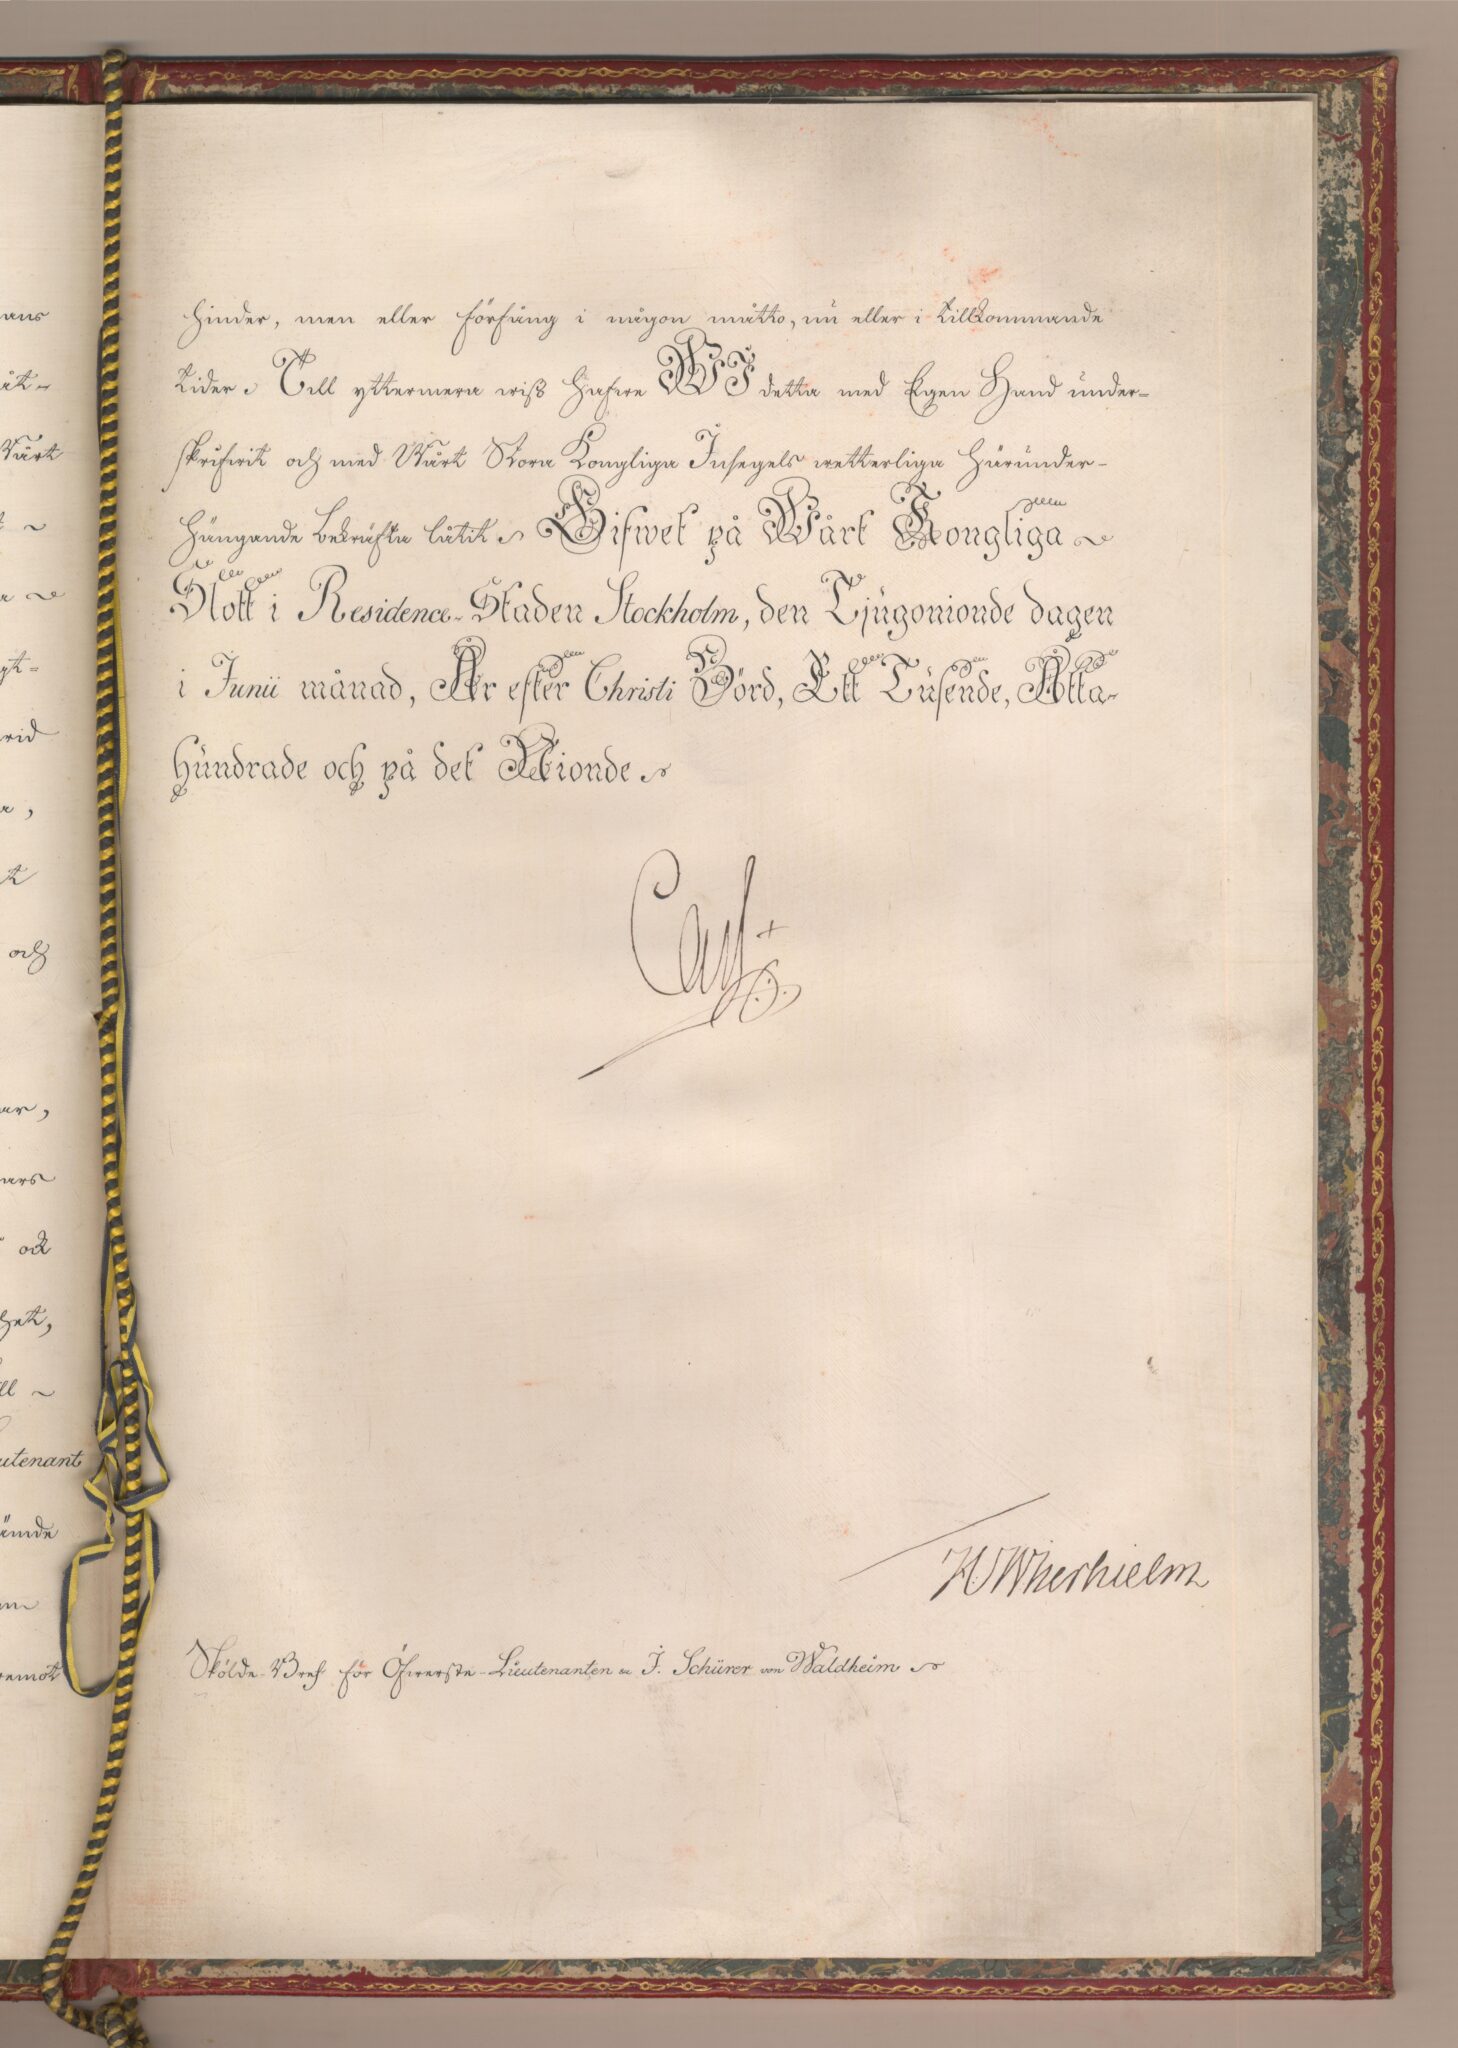 hinder, men eller förfång i någon måtto, nu eller i tillkommande
tider. Till yttermera wiss hafwe WI detta med Egen Hand under-
skrifwit och med Wårt Stora Kongliga Insegels wetterliga härunder-
hängande bekräfta låtit. Gifwet på Wårt Kongliga
Slott i Residence-Staden Stockholm, den Tjugonionde dagen
i Junii månad, År efter Christi Börd, Ett Tusende, Åtta-
hundrade och på det Nionde.
Carl
Skölde-Bref för Öfwerste-Lieutenanten J. Schürer von Waldheim